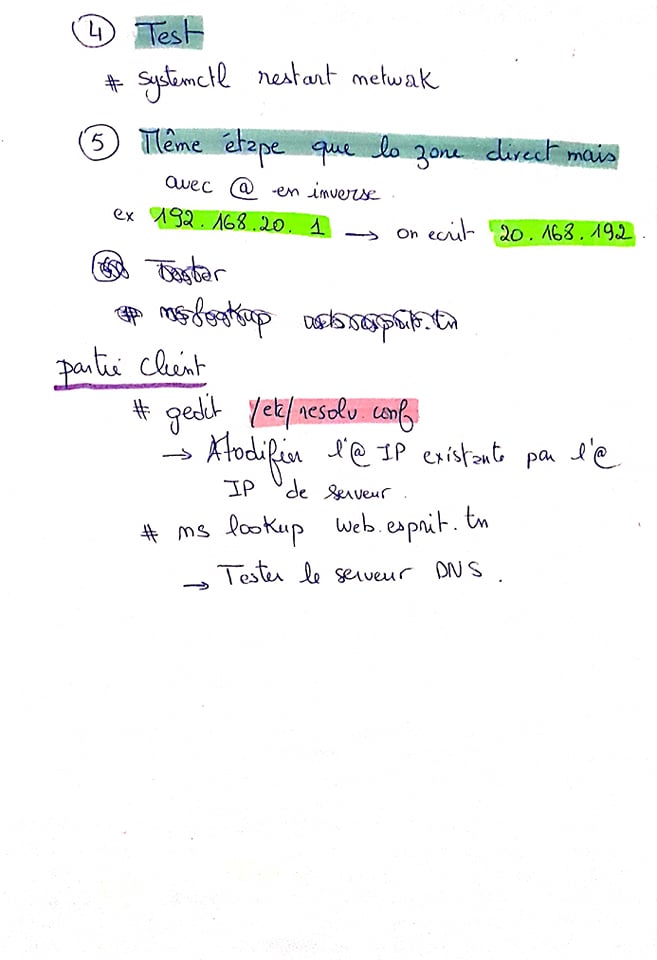 ④ Test
# systemctl restart netwok
⑤ Même étape que la zone direct mais
avec @ en inverse.
ex 192.168.20.1 → on ecrit 20.168.192
Tester
# nslookup web.esprit.tn
partie client
# gedit /etc/resolv.conf
→ Modifier l'@ IP existante par l'@
IP de serveur.
# ns lookup web.esprit.tn
→ Tester le serveur DNS.